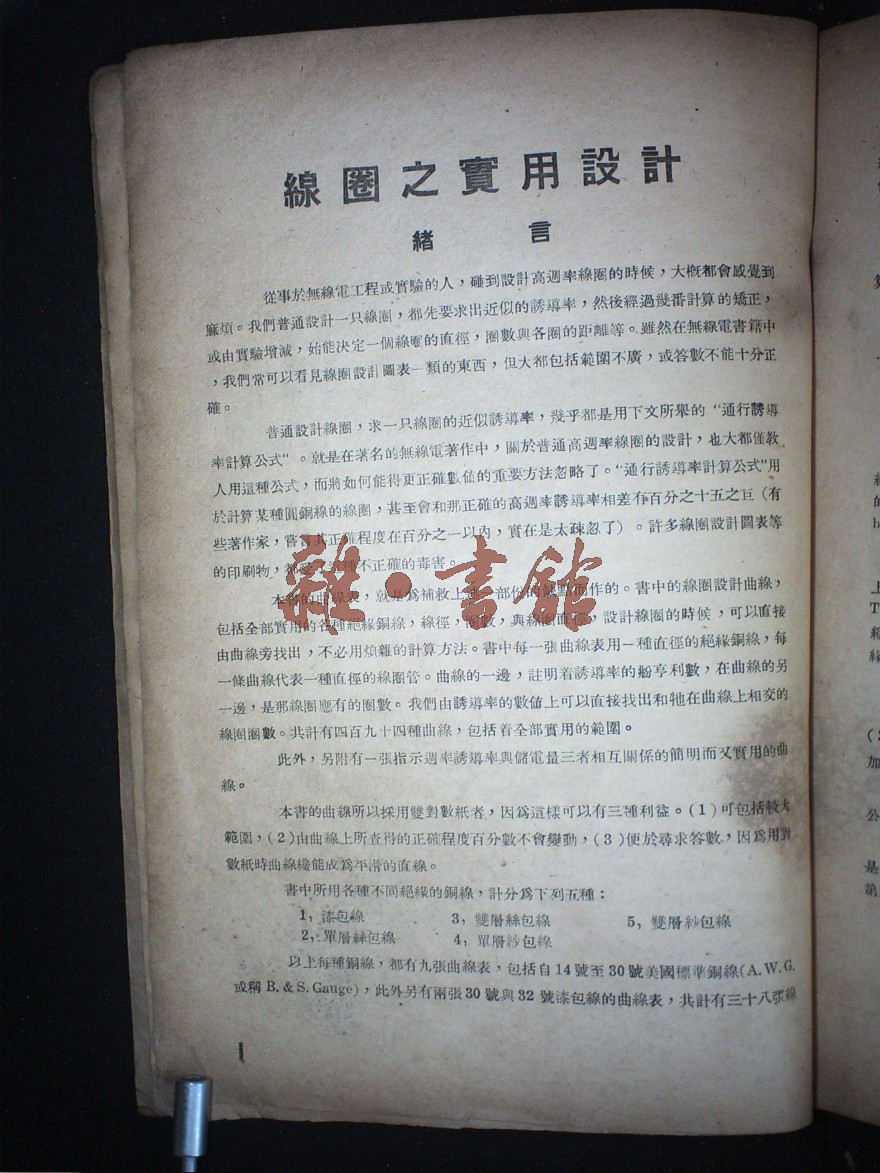 線圈之實用設計
緒言
從事於無線電工程或實驗的人，碰到設計高週率線圈的時候，大概都會感覺到
麻煩。我們普通設計一只線圈，都先要求出近似的誘導率，然後經過幾番計算的矯正，
或由實驗增減，始能決定一個線圈的直徑，圈數與各圈的距離等。雖然在無線電書籍中
，我們常可以看見線圈設計圖表一類的東西，但大都包括範圍不廣，或答數不能十分正
確。
普通設計線圈，求一只線圈的近似誘導率，幾乎都是用下文所舉的“通行誘導
率計算公式”。就是在著名的無線電著作中，關於普通高週率線圈的設計，也大都僅敎
人用這種公式，而將如何能得更正確數値的重要方法忽略了。“通行誘導率計算公式”用
於計算某種圓銅線的線圈，甚至會和那正確的高週率誘導率相差有百分之十五之巨（有
些著作家，嘗言其正確程度在百分之一以內，實在是太疎忽了）。許多線圈設計圖表等
的印刷物，都受了不正確的毒害。
雜·書館
本書的曲線表，就是爲補救上述部份的缺點而作的。書中的線圈設計曲線，
包括全部實用的各種絕緣銅線，線徑，圈數，與線圈直徑，設計線圈的時候，可以直接
由曲線旁找出，不必用煩雜的計算方法。書中每一張曲線表用一種直徑的絕緣銅線，每
一條曲線代表一種直徑的線圈管。曲線的一邊，註明着誘導率的㧾亨利數，在曲線的另
一邊，是那線圈應有的圈數。我們由誘導率的數値上可以直接找出和牠在曲線上相交的
線圈圈數。共計有四百九十四種曲線，包括着全部實用的範圍。
此外，另附有一張指示週率誘導率與儲電量三者相互關係的簡明而又實用的曲
線。
本書的曲線所以採用雙對數紙者，因爲這樣可以有三種利益。(1)可包括較大
範圍，(2)由曲線上所查得的正確程度百分數不會變動，(3)便於尋求答數，因爲用對
數紙時曲線纔能成爲平滑的直線。
書中所用各種不同絕緣的銅線，計分爲下列五種：
1，漆包線 3，雙層絲包線 5，雙層紗包線
2，單層絲包線 4，單層紗包線
以上每種銅線，都有九張曲線表，包括自14號至30號美國標準銅線(A.W.G.
或稱 B.& S. Gauge)，此外另有兩張30號與32號漆包線的曲線表，共計有三十八張線
1